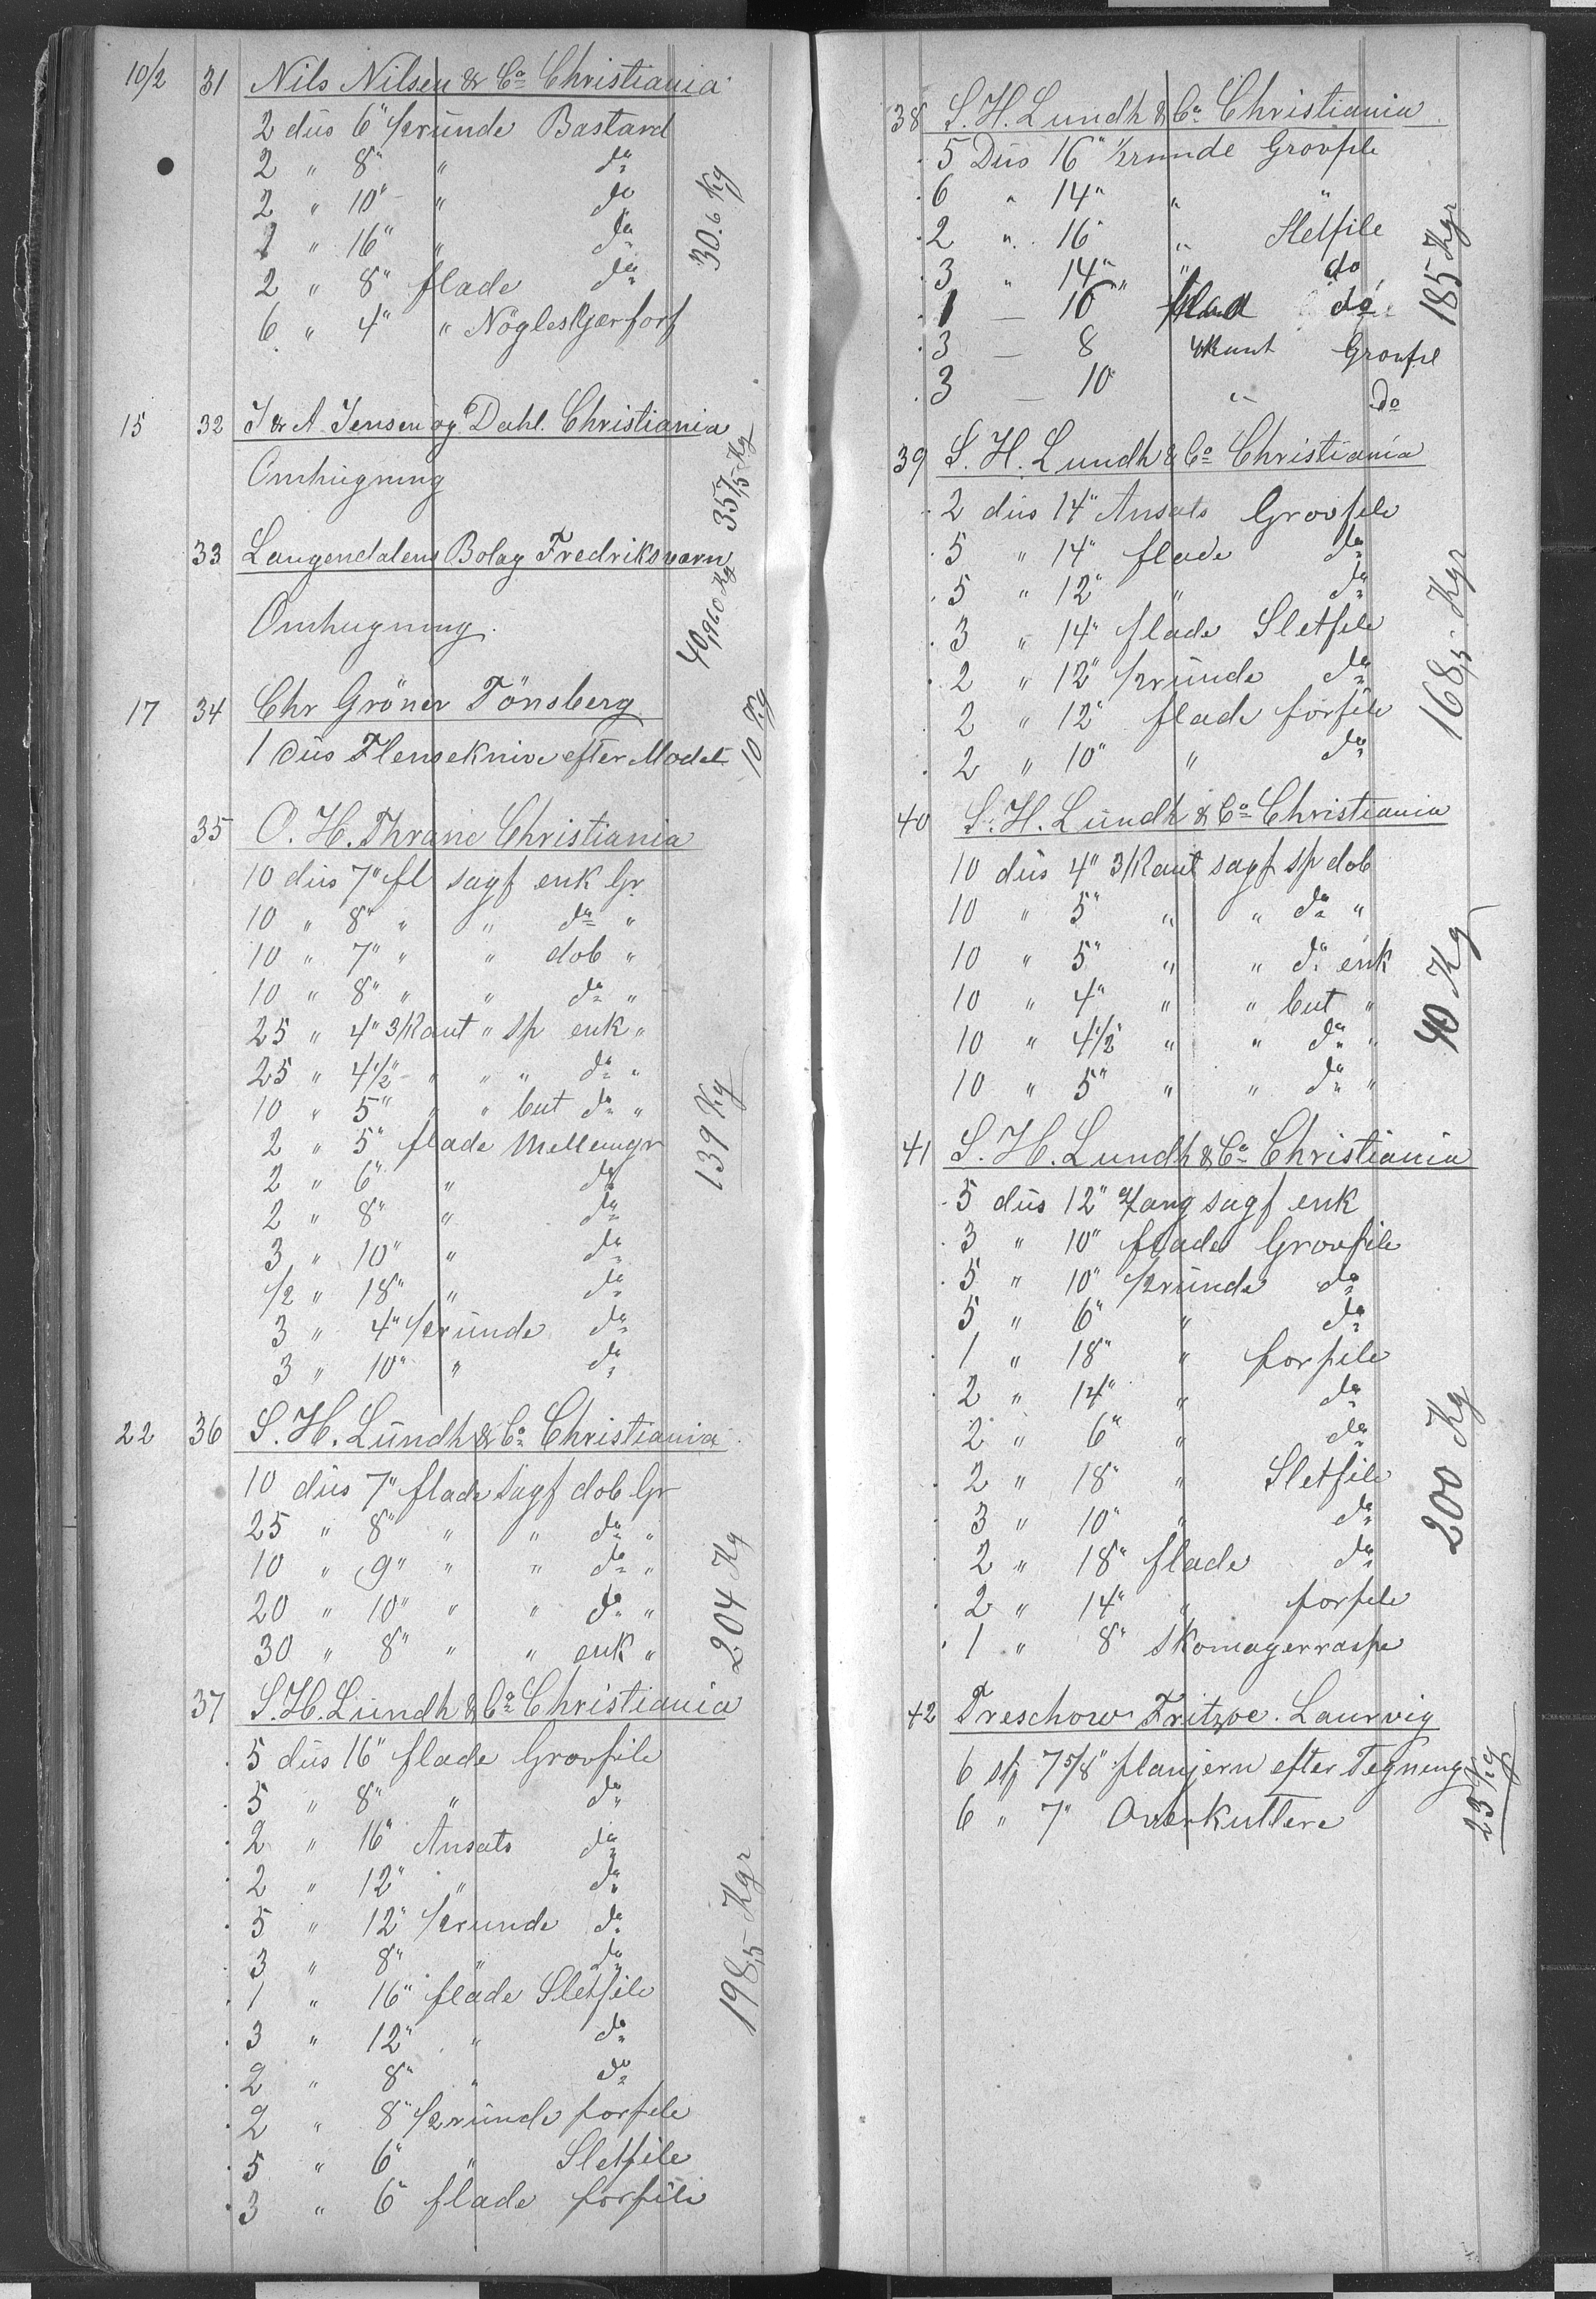 10/2 31 Nils Nilsen & Co Christiania
2 düs 6" 1/2 runde Bastard
2 " 8" " do
2 " 10" " do
1 " 16" " do
2 " 8" flade do
6 " 4" " Nögleskjærforf
30.6 Kg
15 32 J & A Jensen og Dahl. Christiania
Omhugning
357,5 Kg
33 Laugendalens Bolag Fredriksværn
Omhugning.
40,960 Kg
17 34 Chr Gröner Tönsberg
1 Düs Flenseknive efter Model
10 Kg
35 O. H. Thrane Christiania
10 düs 7" fl sagf enk Gr
10 " 8" " " do "
10 " 7" " " dob "
10 " 8" " " do "
25 " 4" 3/Kant " sp enk "
25 " 4 1/2" " " " do "
10 " 5" " " but do "
2 " 5" flade Mellemgr
2 " 6" " do
2 " 8" " do
3 " 10" " do
1/2 " 18" " do
3 " 4" 1/2 runde do
3 " 10" " do
139 Kg
22 36 S. H. Lündh & Co Christiania
10 düs 7" flade sagf dob Gr
25 " 8" " " do "
10 " 9" " " do "
20 " 10" " " do "
30 " 8" " " enk "
204 Kg
37 S. H. Lündh & Co Christiania
5 düs 16" flade Grovfile
5 " 8" " do
2 " 16" Ansats do
2 " 12" " do
5 " 12" 1/2 runde do
3 " 8" " do
1 " 16" flade Sletfile
3 " 12" " do
2 " 8" " do
2 " 8" 1/2 runde forfile
5 " 6" " Sletfile
3 " 6" flade forfile
198,5 Kgr
38 S. H. Lundh & Co Christiania
5 Düs 16" 1/2 runde Grovfile
6 " 14" " "
2 " 16" " Sletfile
3 " 14" " do
1 — 16 flad do
3 — 8 4Kant Grovfil
3 — 10" " Do
185 Kgr
39 S. H. Lundh & Co Christiania
2 düs 14" Ansats Grovfile
5 " 14" flade do
5 " 12" " do
3 " 14" flade Sletfile
2 " 12" 1/2 runde do
2 " 12" flade forfile
2 " 10" " do
168,5 Kgr
40 S. H. Lündh & Co Christiania
10 düs 4" 3/Kant sagf sp dob
10 " 5" " " do "
10 " 5" " " do enk
10 " 4" " " but "
10 " 4 1/2 " " do "
10 " 5" " " do "
40 Kg
41 S. H. Lundh & Co Christiania
5 düs 12" sagf enk
3 " 10" flade Grovfile
5 " 10" 1/2 runde do
5 " 6" " do
1 " 18" " forfile
2 " 14" " do
2 " 6" " do
2 " 18" " Sletfile
3 " 10" " do
2 " 18" flade do
2 " 14" " forfile
1 " 8" Skomagerraspe
200 Kg
42 Treschow Fritzøe. Laurvig
6 stk 7 5/8" planjern efter Tegning
6 " 7" Overkuttere
23 Kg